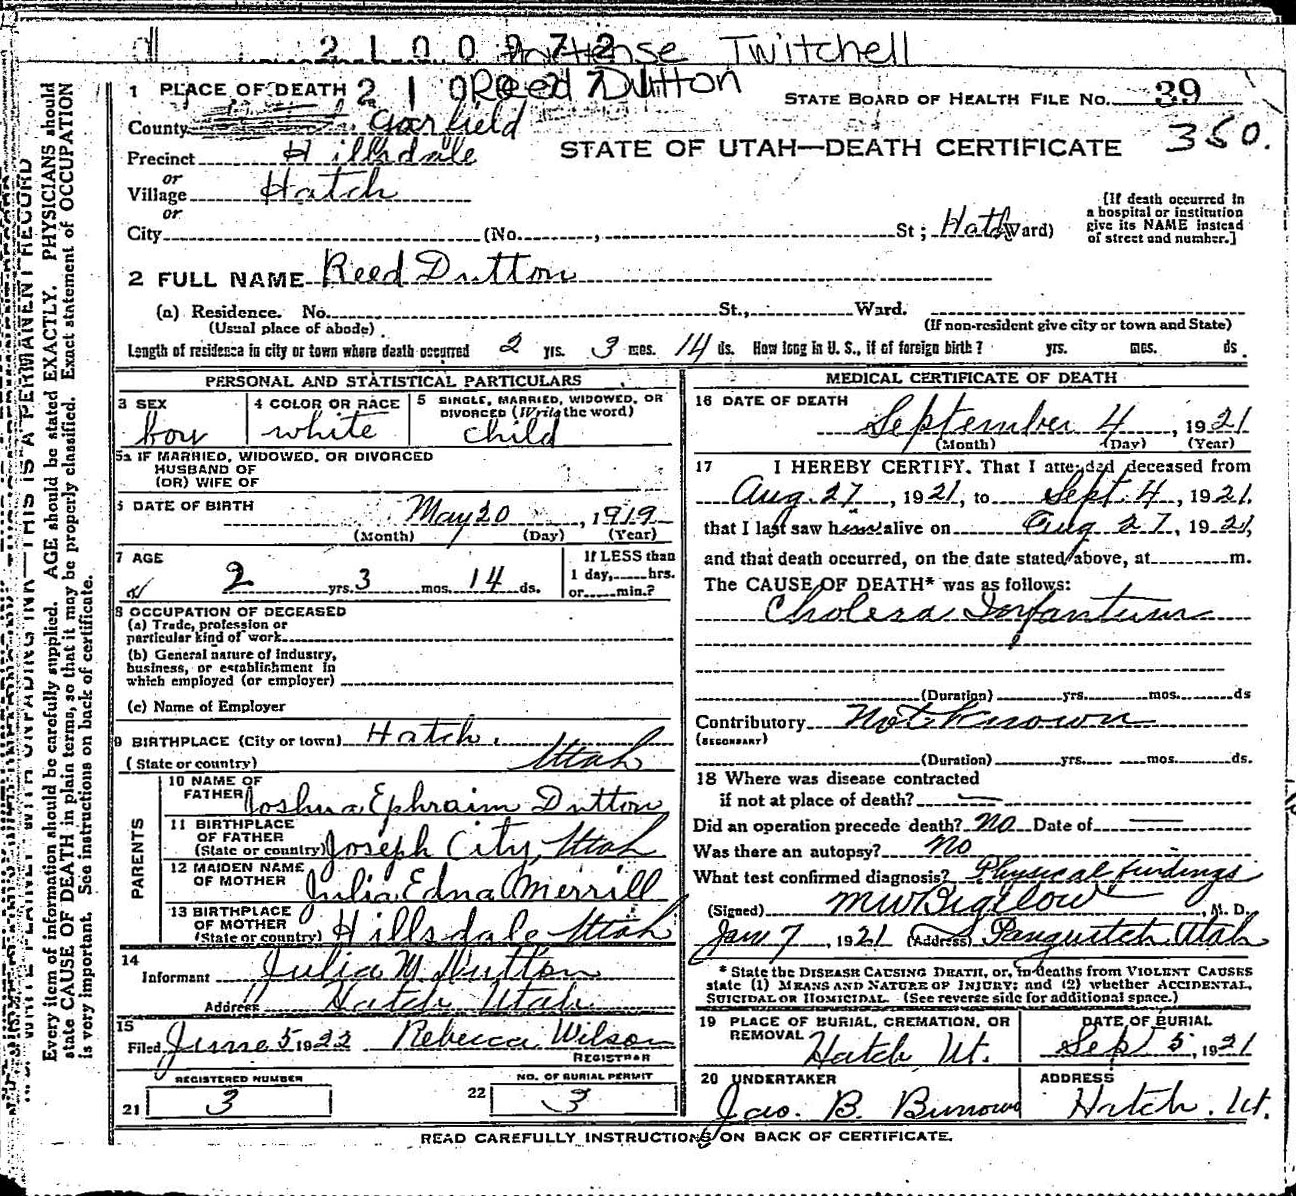 2100972
Twitchell
Reed Dutton
1 PLACE OF DEATH
STATE BOARD OF HEALTH FILE No. 39
County Garfield
350.
Precinct Hillsdale
STATE OF UTAH—DEATH CERTIFICATE
or
Village Hatch
or
City (No. , St; Hatch Ward)
[If death occurred in
a hospital or institution
give its NAME instead
of street and number.]
2 FULL NAME Reed Dutton
(a) Residence. No. St., Ward.
(Usual place of abode)
(If non-resident give city or town and State)
Length of residence in city or town where death occurred 2 yrs. 3 mos. 14 ds. How long in U. S., if of foreign birth? yrs. mos. ds.
PERSONAL AND STATISTICAL PARTICULARS
3 SEX
boy
4 COLOR OR RACE
white
5 SINGLE, MARRIED, WIDOWED, OR
DIVORCED (Write the word)
child
5a IF MARRIED, WIDOWED, OR DIVORCED
HUSBAND OF
(OR) WIFE OF
6 DATE OF BIRTH
May 20, 1919
(Month) (Day) (Year)
7 AGE
2 yrs. 3 mos. 14 ds.
If LESS than
1 day, hrs.
or min.?
8 OCCUPATION OF DECEASED
(a) Trade, profession or
particular kind of work
(b) General nature of industry,
business, or establishment in
which employed (or employer)
(c) Name of Employer
9 BIRTHPLACE (City or town) Hatch,
(State or country) Utah
PARENTS
10 NAME OF
FATHER Joshua Ephraim Dutton
11 BIRTHPLACE
OF FATHER
(State or country) Joseph City, Utah
12 MAIDEN NAME
OF MOTHER Julia Edna Merrill
13 BIRTHPLACE
OF MOTHER
(State or country) Hillsdale Utah
14
Informant Julia M Dutton
Address Hatch Utah
15
Filed June 5 1922 Rebecca Wilson
REGISTRAR
REGISTERED NUMBER
21 3
NO. OF BURIAL PERMIT
22 3
MEDICAL CERTIFICATE OF DEATH
16 DATE OF DEATH
September 4, 1921
(Month) (Day) (Year)
17 I HEREBY CERTIFY. That I attended deceased from
Aug. 27, 1921, to Sept. 4, 1921.
that I last saw him alive on Aug 27, 1921,
and that death occurred, on the date stated above, at m.
The CAUSE OF DEATH* was as follows:
Cholera Infantum
(Duration) yrs. mos. ds
Contributory Not Known
(SECONDARY)
(Duration) yrs. mos. ds.
18 Where was disease contracted
if not at place of death? —
Did an operation precede death? No Date of —
Was there an autopsy? No
What test confirmed diagnosis? Physical findings
(Signed) M W Bigelow, M. D.
Jan 7, 1921 (Address) Panguitch, Utah
* State the DISEASE CAUSING DEATH, or, in deaths from VIOLENT CAUSES
state (1) MEANS AND NATURE OF INJURY; and (2) whether ACCIDENTAL,
SUICIDAL OR HOMICIDAL. (See reverse side for additional space.)
19 PLACE OF BURIAL, CREMATION, OR
REMOVAL Hatch Ut.
DATE OF BURIAL
Sept 5, 1921
20 UNDERTAKER
Jas. B. Burrows
ADDRESS
Hatch. Ut.
READ CAREFULLY INSTRUCTIONS ON BACK OF CERTIFICATE.
THIS IS A PERMANENT RECORD
Every item of information should be carefully supplied. AGE should be stated EXACTLY. PHYSICIANS should
state CAUSE OF DEATH in plain terms, so that it may be properly classified. Exact statement of OCCUPATION
is very important. See instructions on back of certificate.